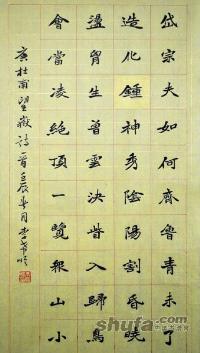 岱宗夫如何齊魯青未了
造化鍾神秀陰陽割昏曉
盪胷生曾雲決眥入歸鳥
會當凌絕頂一覽眾山小
唐杜甫望嶽詩一首壬辰春月李
shufa.com